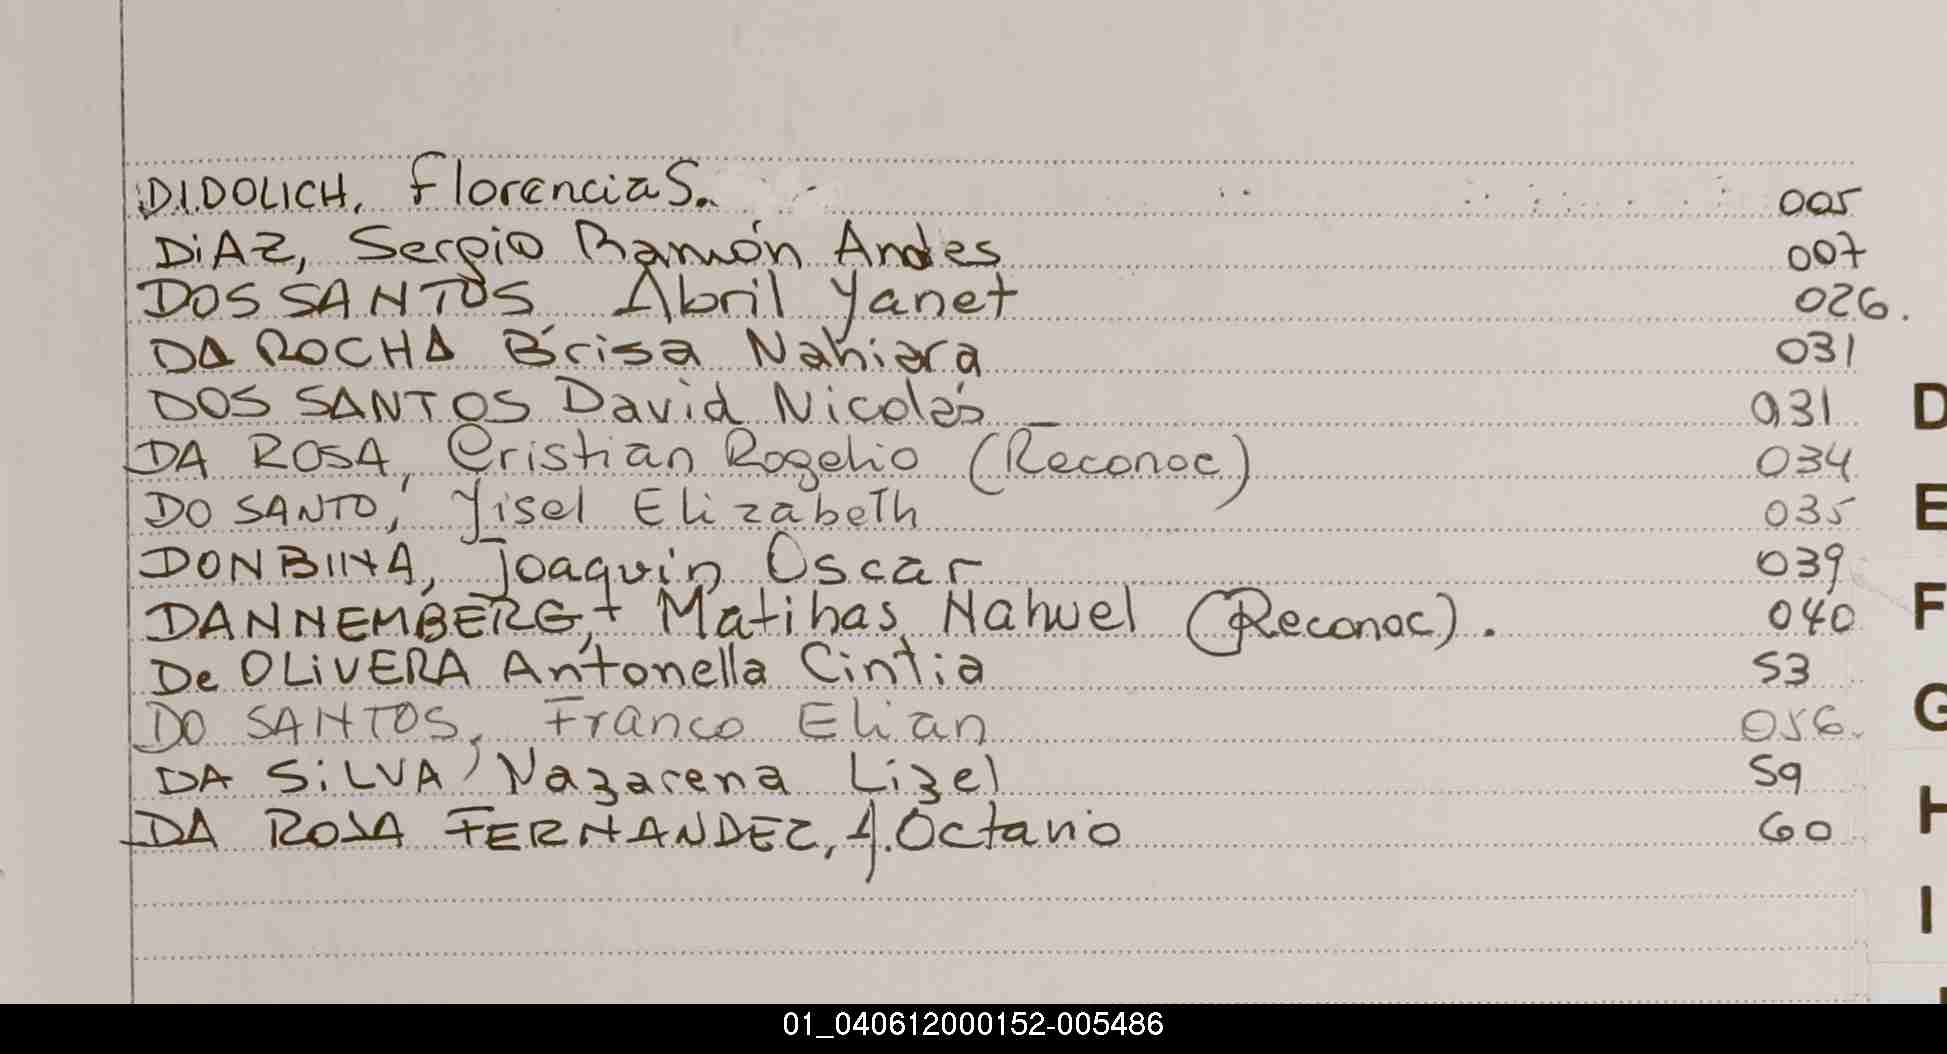 DIDOLICH, Florencia S. 005
DiAZ, Sergio Ramón Andes 007
DOS SANTOS Abril Yanet 026.
DA ROCHA Brisa Nahiara 031
DOS SANTOS David Nicolás 031
DA ROSA, Cristian Rogelio (Reconoc) 034
DO SANTO, Yisel Elizabeth 035
Joaquin Oscar 039
DANNEMBERG, Matihas Nahuel (Reconoc). 040
De OLiVERA Antonella Cintia 53
DO SANTOS, Franco Elian 056.
DA SiLVA, Nazarena Lizel 59
DA ROSA FERNANDEZ, J. Octavio 60
D
E
F
G
H
I
01_040612000152-005486